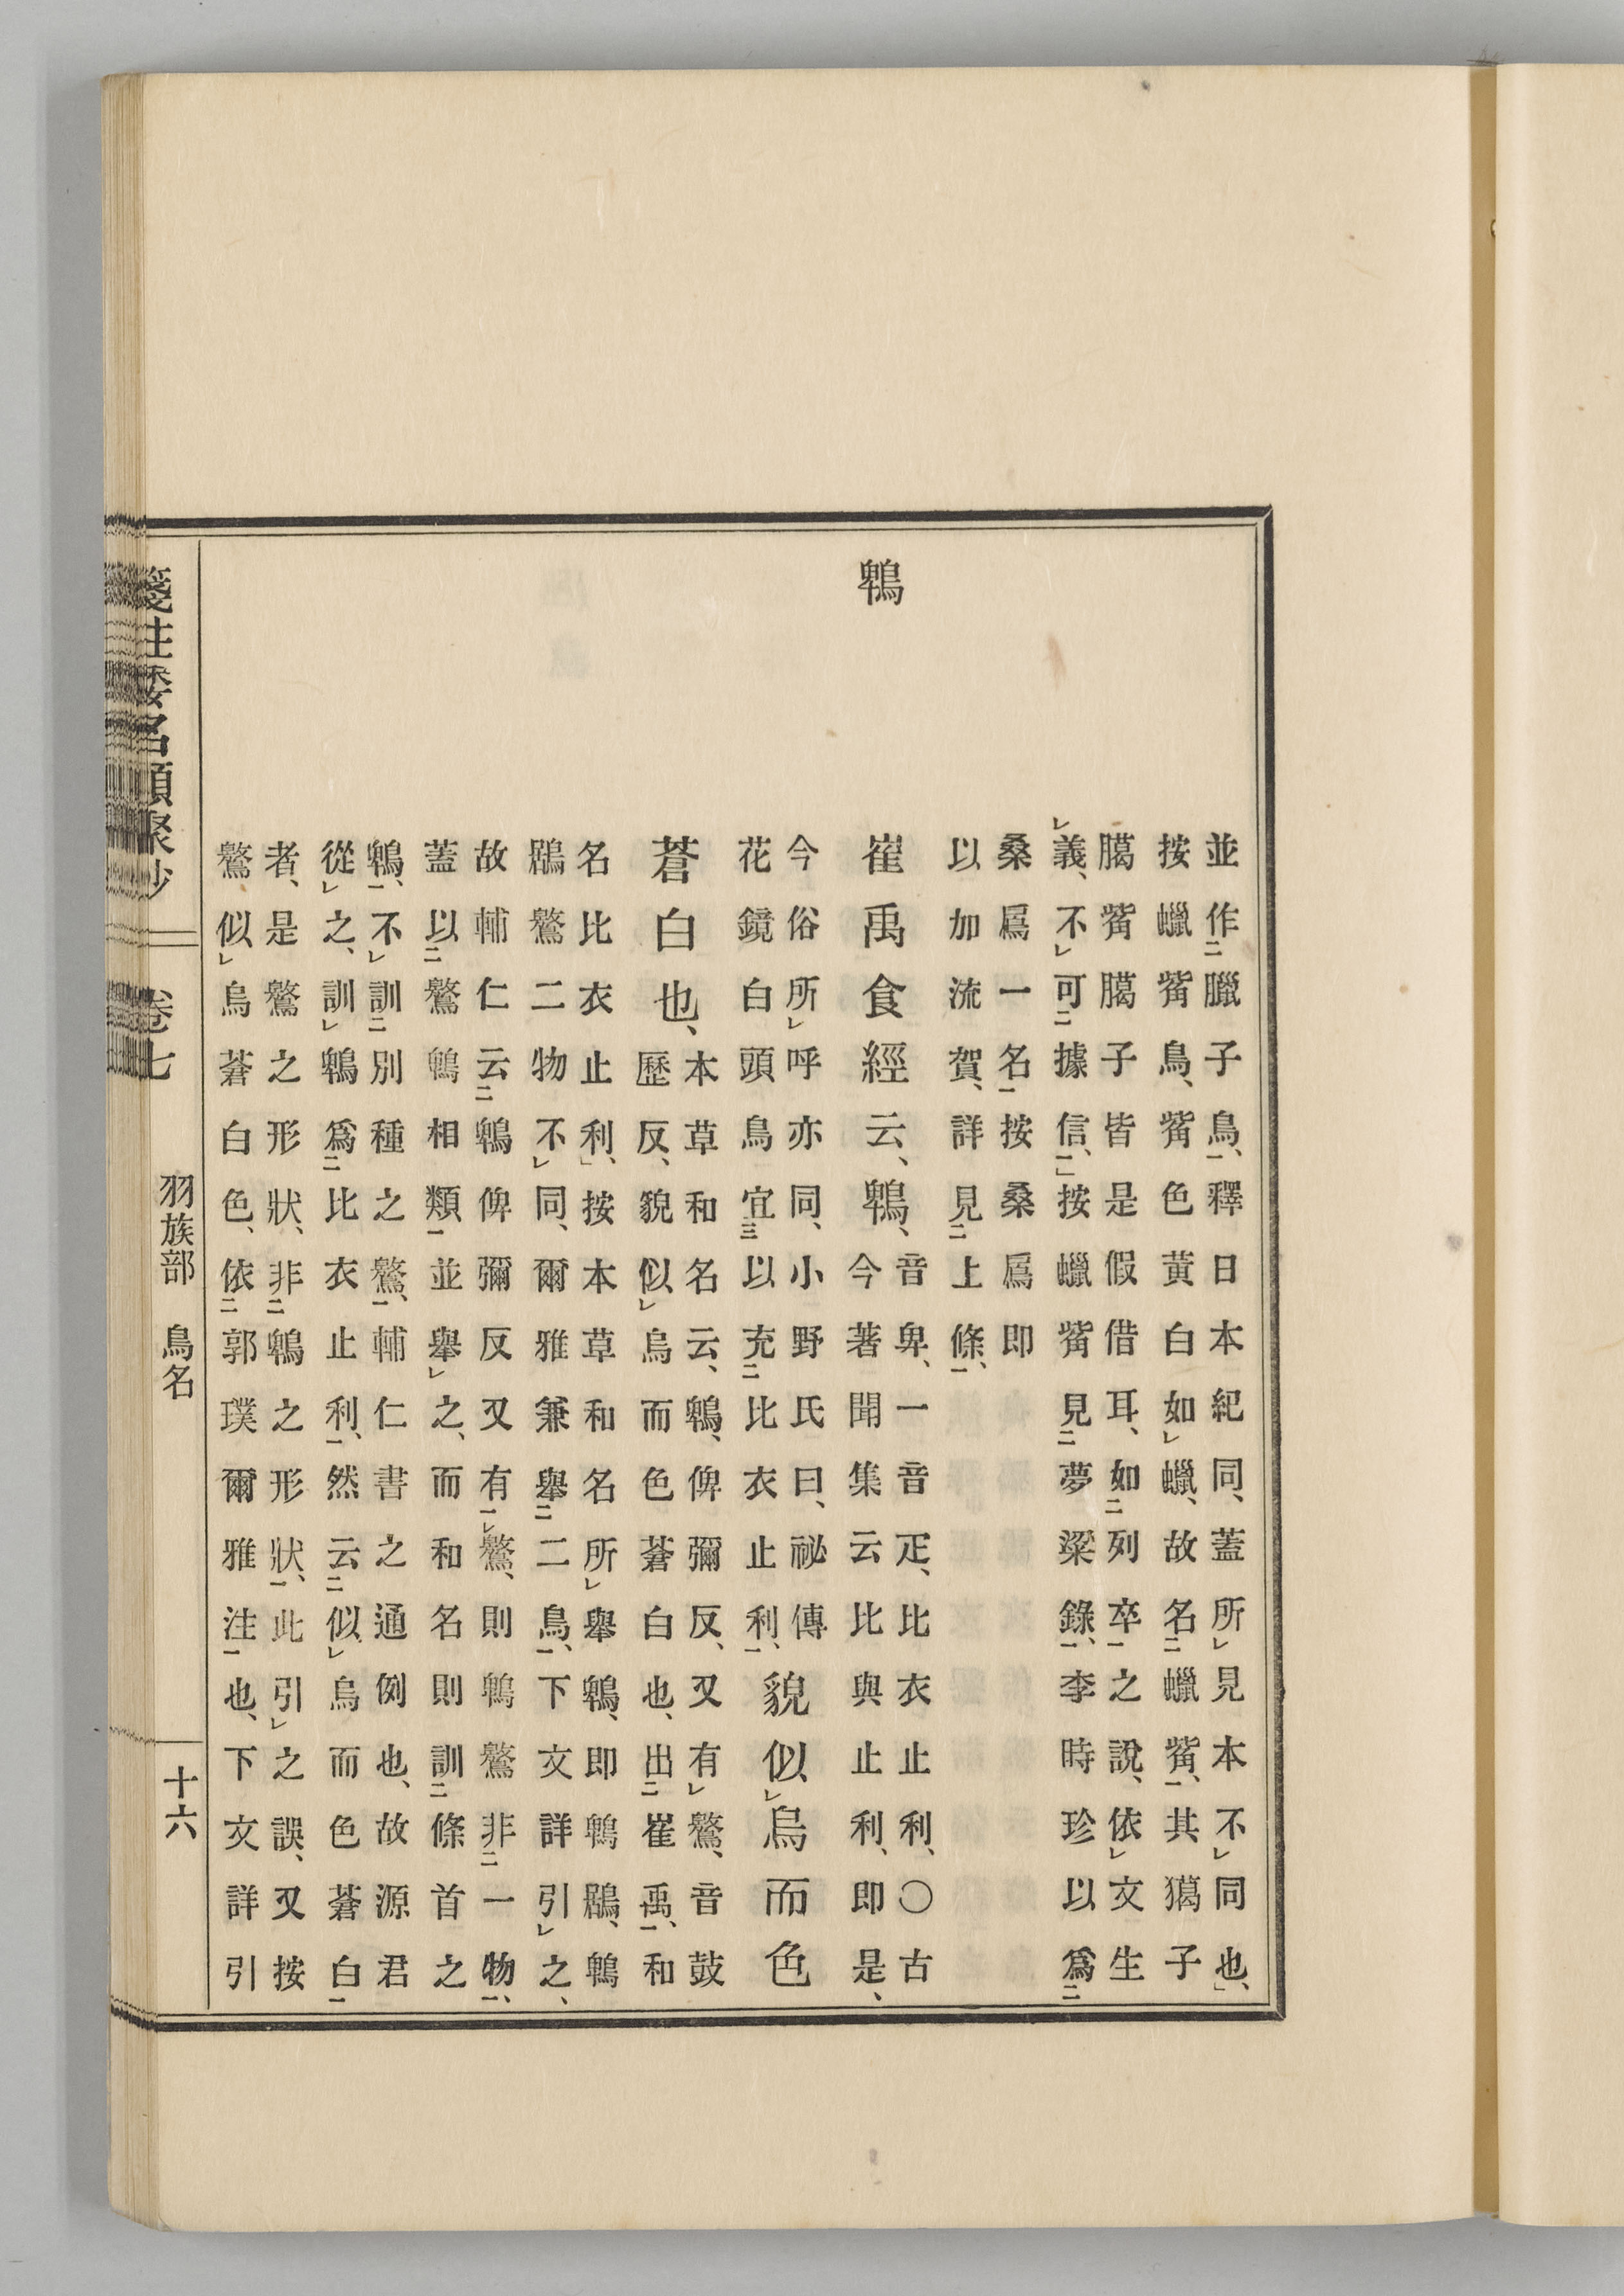 並作二臘子鳥一、釋日本紀同、蓋所レ見本不レ同也、」
按蠟觜鳥、觜色黃白如レ蠟、故名二蠟觜一、其獦子
臈觜臈子皆是假借耳、如二列卒一之說、依レ文生
レ義、不レ可二據信一、」按蠟觜見二夢粱錄一、李時珍以爲二
桑鳸一名一按桑鳸即
以加流賀、詳見二上條一、
鵯
崔禹食經云、鵯、
音卑、一音疋、比衣止利、〇古
今著聞集云比與止利、即是、
今俗所レ呼亦同、小野氏曰、祕傳
花鏡白頭鳥宜三以充二比衣止利一、
貌似レ烏而色
蒼白也、
本草和名云、鵯、俾彌反、又有レ鷽、音鼓
歷反、貌似レ烏而色蒼白也、出二崔禹一、和
名比衣止利」、按本草和名所レ擧鵯、即鵯鶋、鵯
鶋鷽二物不レ同、爾雅兼擧二二鳥一、下文詳引レ之、
故輔仁云二鵯俾彌反又有一レ鷽、則鵯鷽非二一物一、
蓋以二鷽鵯相類一並擧レ之、而和名則訓二條首之
鵯一、不レ訓二別種之鷽一、輔仁書之通例也、故源君
從レ之、訓レ鵯爲二比衣止利一、然云二似レ烏而色蒼白一
者、是鷽之形狀、非二鵯之形狀一、此引レ之誤、又按
鷽似レ烏蒼白色、依二郭璞爾雅注一也、下文詳引
箋注倭名類聚抄
卷七
羽族部 鳥名
十六